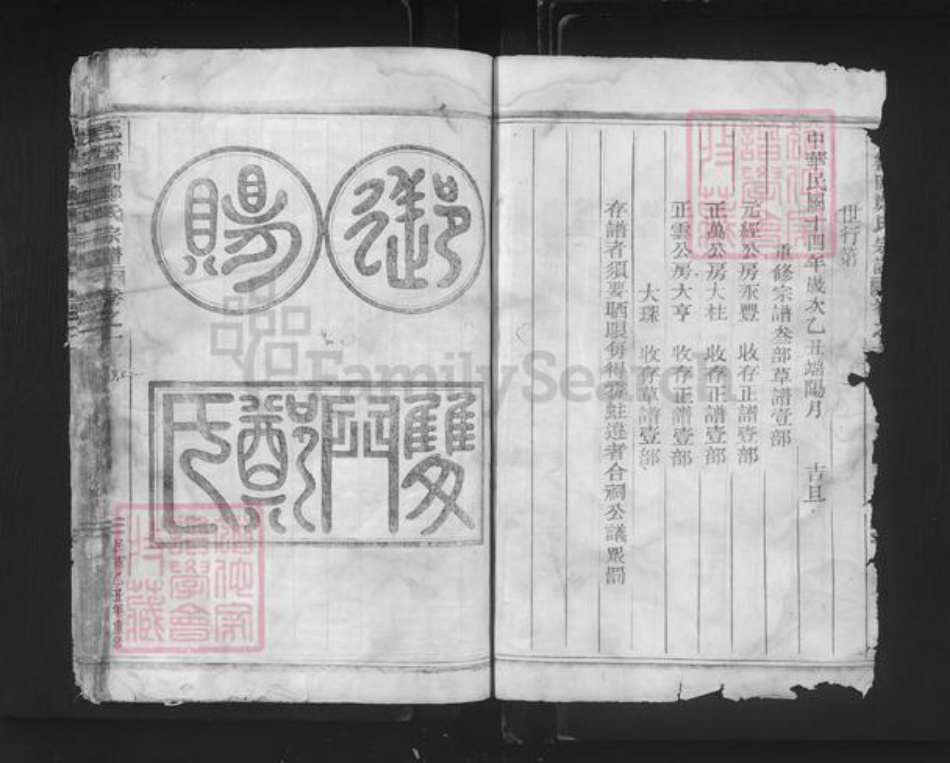 世行第
中華民國十四年歲次乙丑端陽月 吉旦
重修宗譜叁部草譜壹部
元經公房永豐 收存正譜壹部
正萬公房大柱 收存正譜壹部
正雲公房大亨 收存正譜壹部
大琛 收存草譜壹部
存譜者須要晒眼毎得霉蛀違者合祠公議眾罰
御
賜
雙門鄭氏
FamilySearch